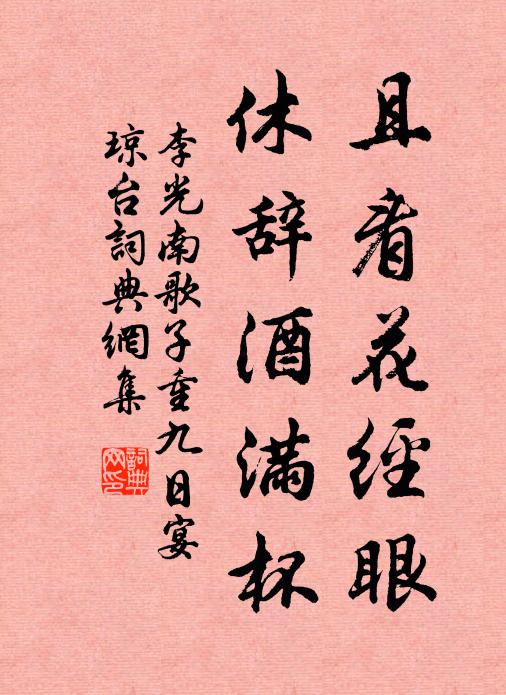 且看花经眼
休辞酒满杯
李光南歌子重九日宴
琼台詞典網集
詞典网印